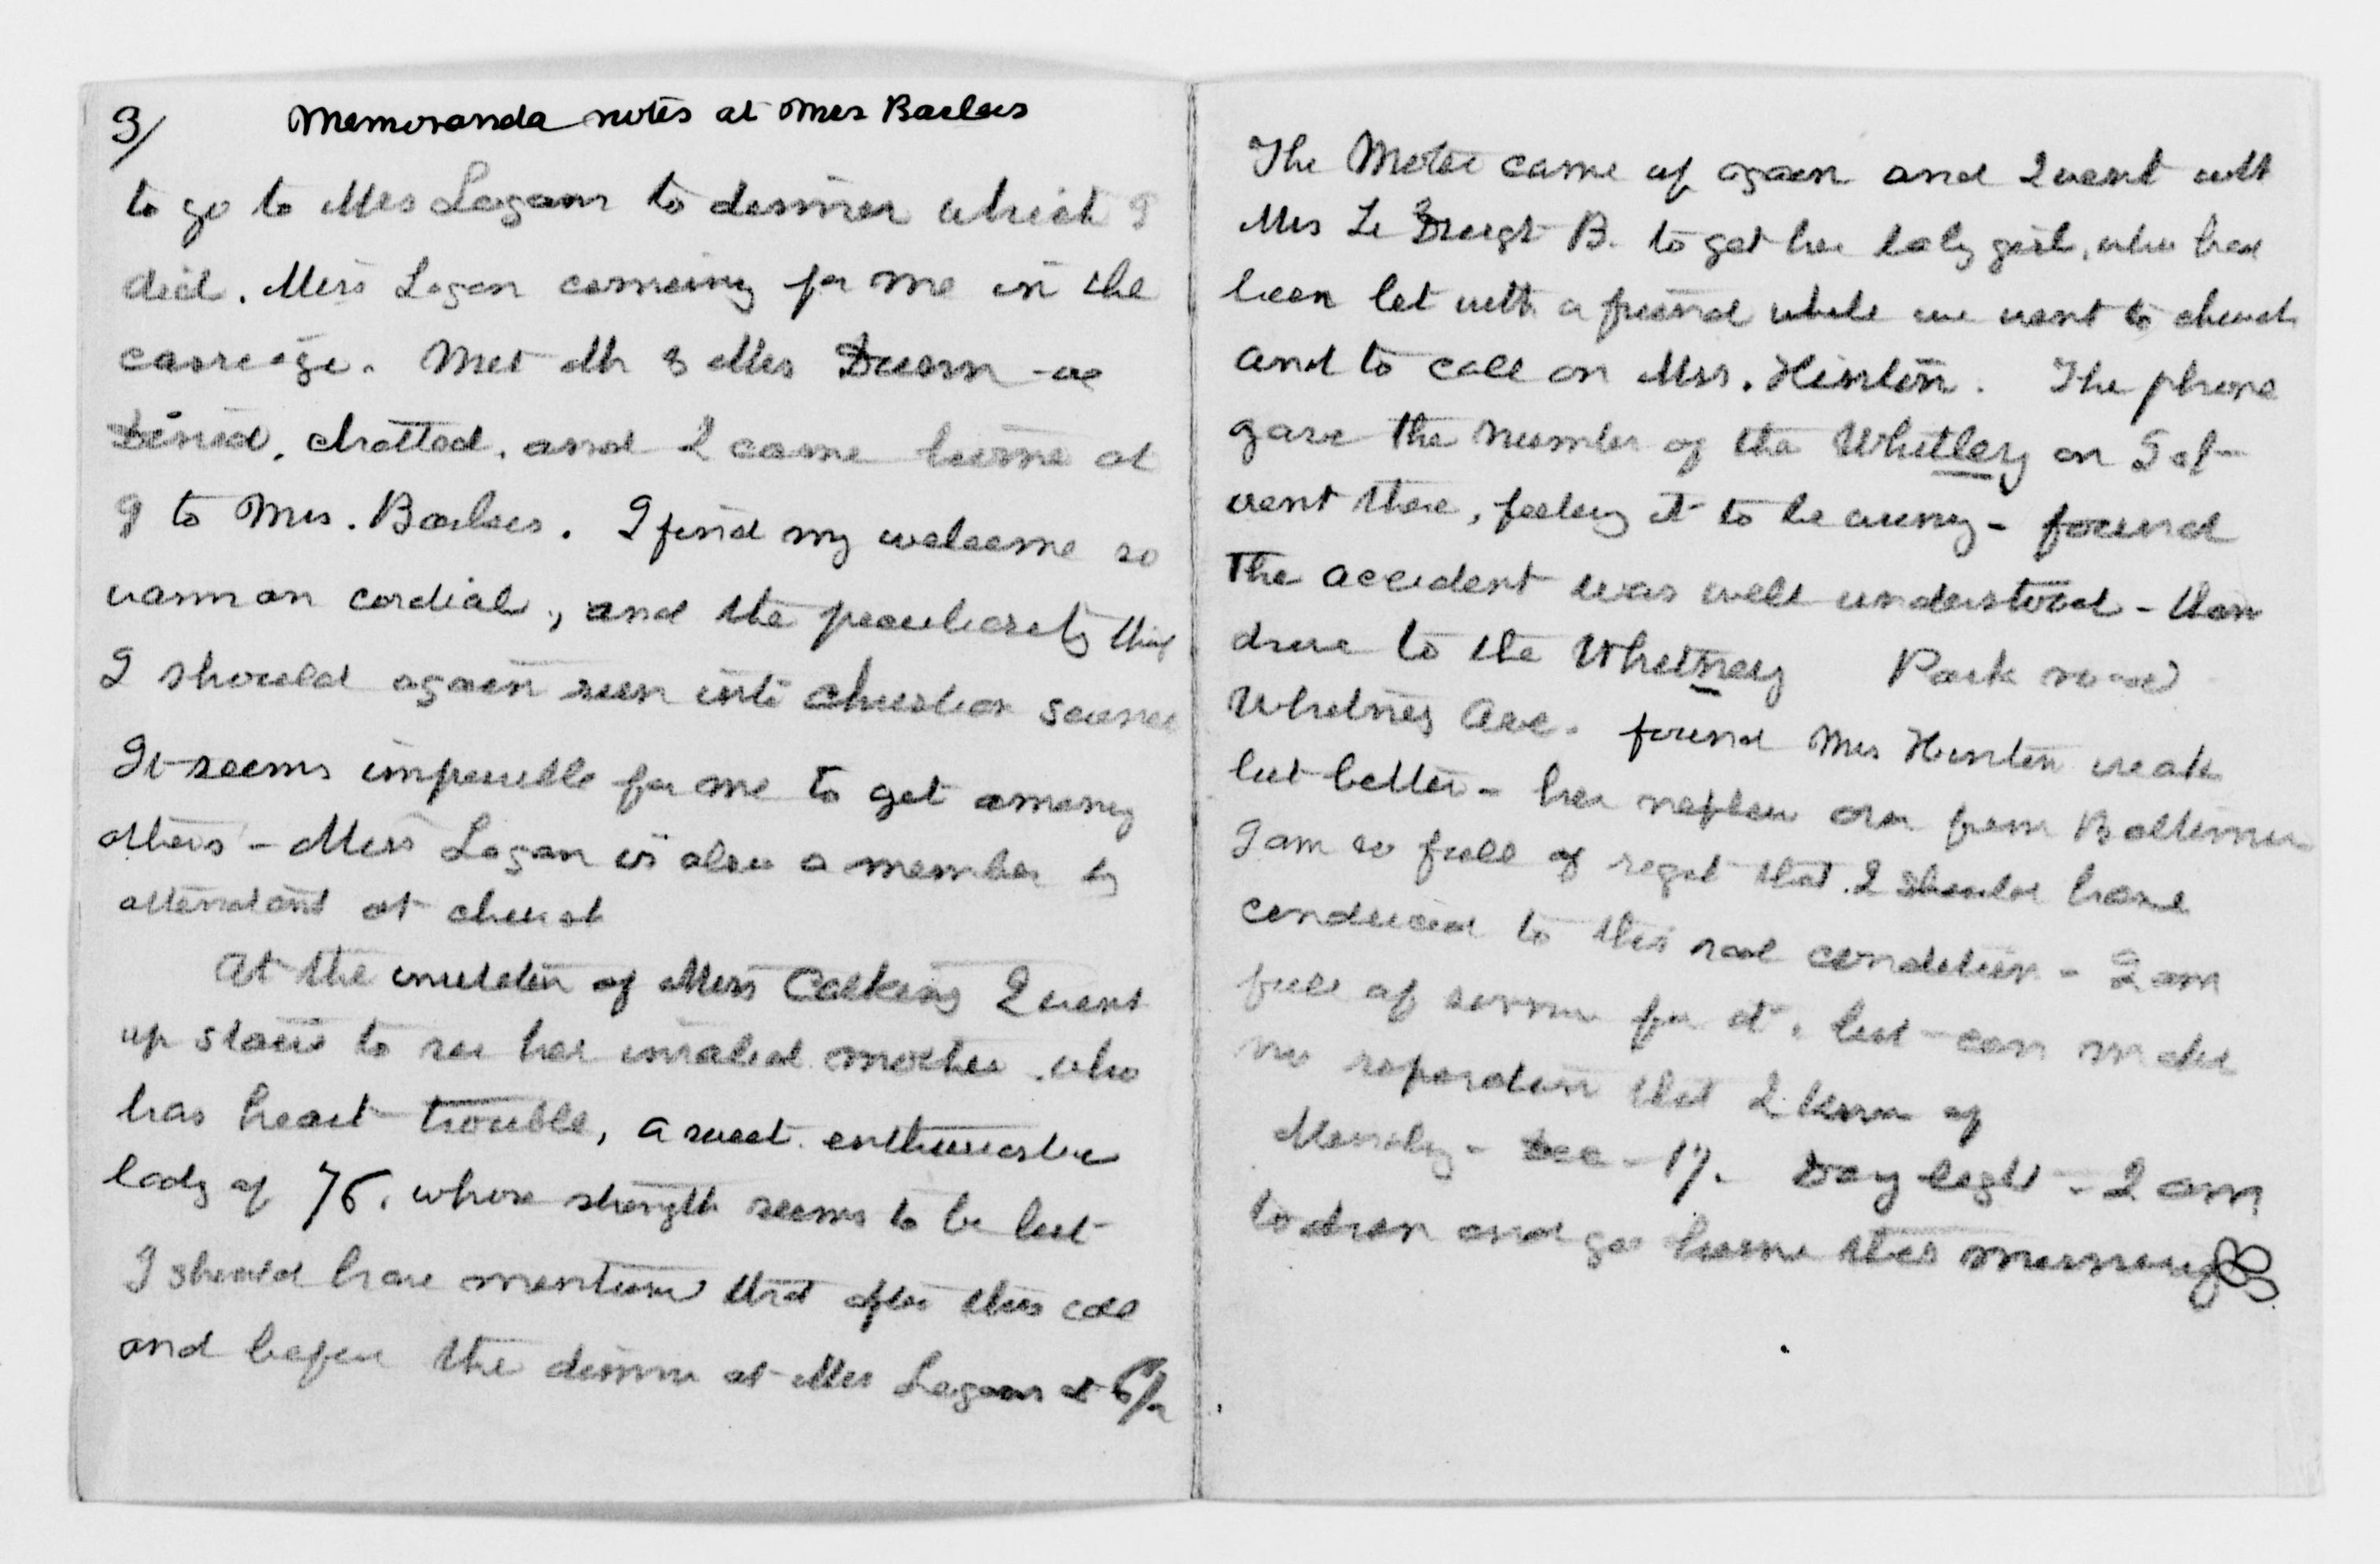 3/ Memoranda notes at Mrs Barlows
to go to Mrs Logans to dinner which I
did. Miss Logan comeing for me in the
carriage. Met Mr & Mrs Dunn - we
Dined, chatted, and I came home at
9 to Mrs. Barlows. I find my welcome so
warm an cordial, and the peculiarity that
I should again run into Christian science
It seems impossible for me to get among
others - Miss Logan is also a member by
attendant at church
At the invitation of Miss Calkins I went
up stairs to see her invalid mother. who
has heart trouble, a sweet enthusiastic
lady of 76. whose strength seems to be but
I should have mention that after this call
and before the dinner at Mrs Logans at 6/2
The Motor came up again and I went with
Mrs Le B. to get her baby girl, who had
been let with a friend while we went to church
and to call on Mrs. Hinton. The phone
gave the number of the Whitley on S of -
went there, feeling it to be wrong - found
The accident was well understood - then
drive to the Whitney Park road
Whitney Ave. found Mrs Hinton weak
but better - her nephew over from Baltimore
I am so full of regret that I should have
conduced to this sad condition - I am
full of sorrow for it. but can make
no reparation that I know of
Monday - Dec - 17. Day light - I am
to dress and go home this morning